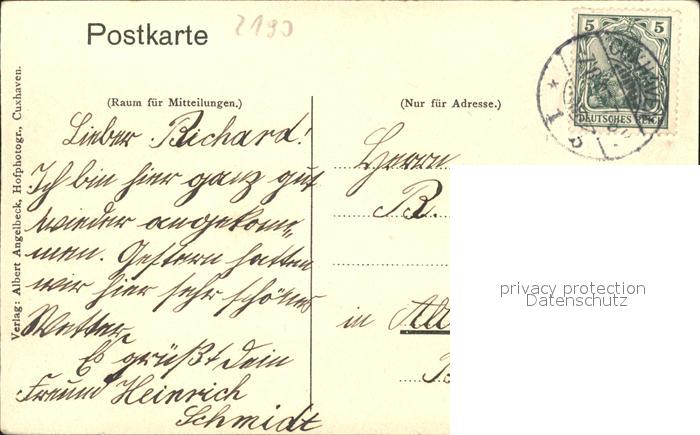 Postkarte
2190
5 5
DEUTSCHES REICH
CUXHAVEN
* 1 b
(Raum für Mitteilungen.)
(Nur für Adresse.)
Verlag: Albert Angelbeck, Hofphotogr., Cuxhaven.
Lieber Richard!
Ich bin hier ganz gut
wieder angekom=
men. Gestern hatten
wir hier sehr schönes
Wetter.
Es grüßt Dein
Freund Heinrich
Schmidt
Herrn
R.
in
privacy protection
Datenschutz